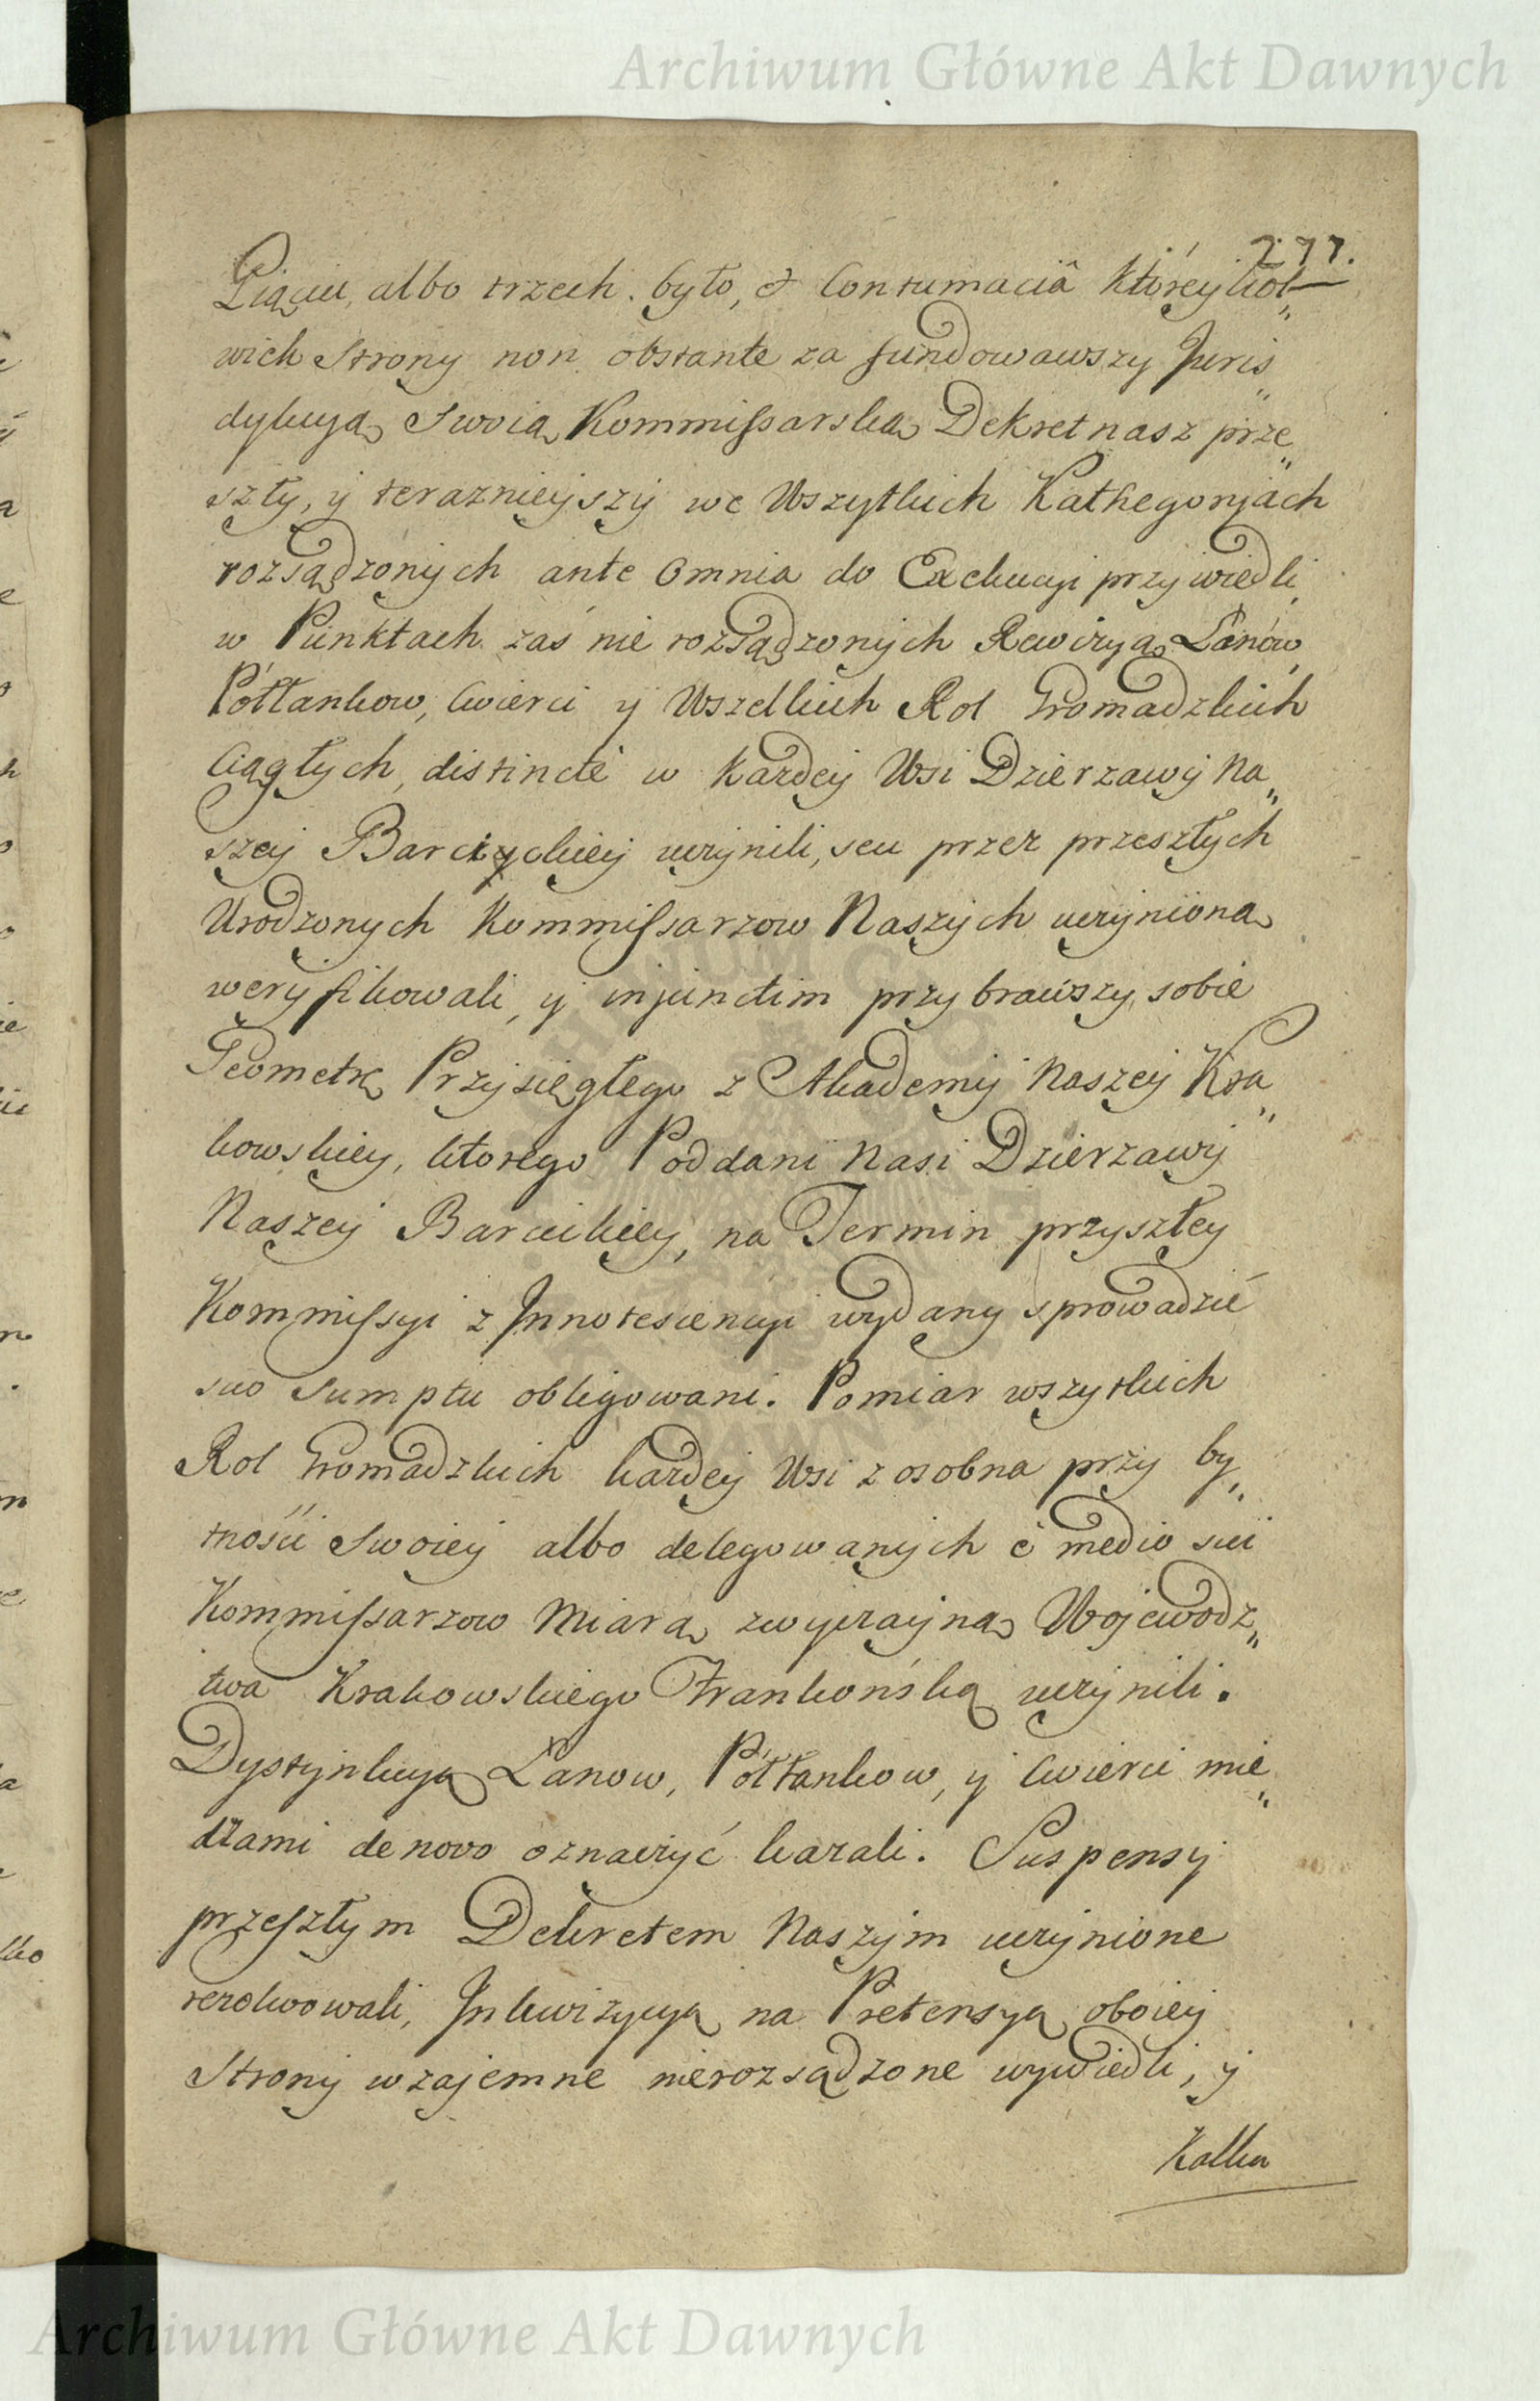 Archiwum Główne Akt Dawnych
277.
Piąciu, albo trzech. było, et Contumaciâ któreykol„
wiek Strony non obstante za fundowawszy Juris„
dykcyą Swoią Kommissarską Dekret nasz prze„
szły, y teraznieyszy we Wszytkich Kathegoryach
rozsądzonych ante Omnia do Exekucyi przywiedli,
w Punktach zaś nie rozsądzonych Rewizyą Łanów,
Półłankow, Cwierci y Wszelkich Rol Gromadzkich
Ciągłych, distincte w każdey Wsi Dzierzawy Na„
szey Barcyckiey uczynili, seu przez przeszłych
Urodzonych Kommissarzow Naszych uczynioną
weryfikowali, y injunctim przybrawszy sobie
Geometrę Przysięgłego z Akademij Naszey Kra„
kowskiey, ktorego Poddani Nasi Dzierzawy
Naszey Barcickiey, na Termin przyszłey
Kommissyi z Innotescencyi wydany sprowadzić
suo Sumptu obligowani. Pomiar wszytkich
Rol Gromadzkich każdey Wsi z osobna przy by„
tności Swoiey albo delegowanych è medio sui
Kommissarzow Miarą zwyczayną Wojewodz„
twa Krakowskiego Frankońską uczynili.
Dystynkcyą Łanow, Półłankow, y Cwierci mie„
dzami de novo oznaczyć kazali. Suspensy
przeszłym Dekretem Naszym uczynione
rezolwowali, Inkwizycyą na Pretensyą oboiey
Strony wzajemne nierozsądzone wywiedli, y
Kalku
Archiwum Główne Akt Dawnych